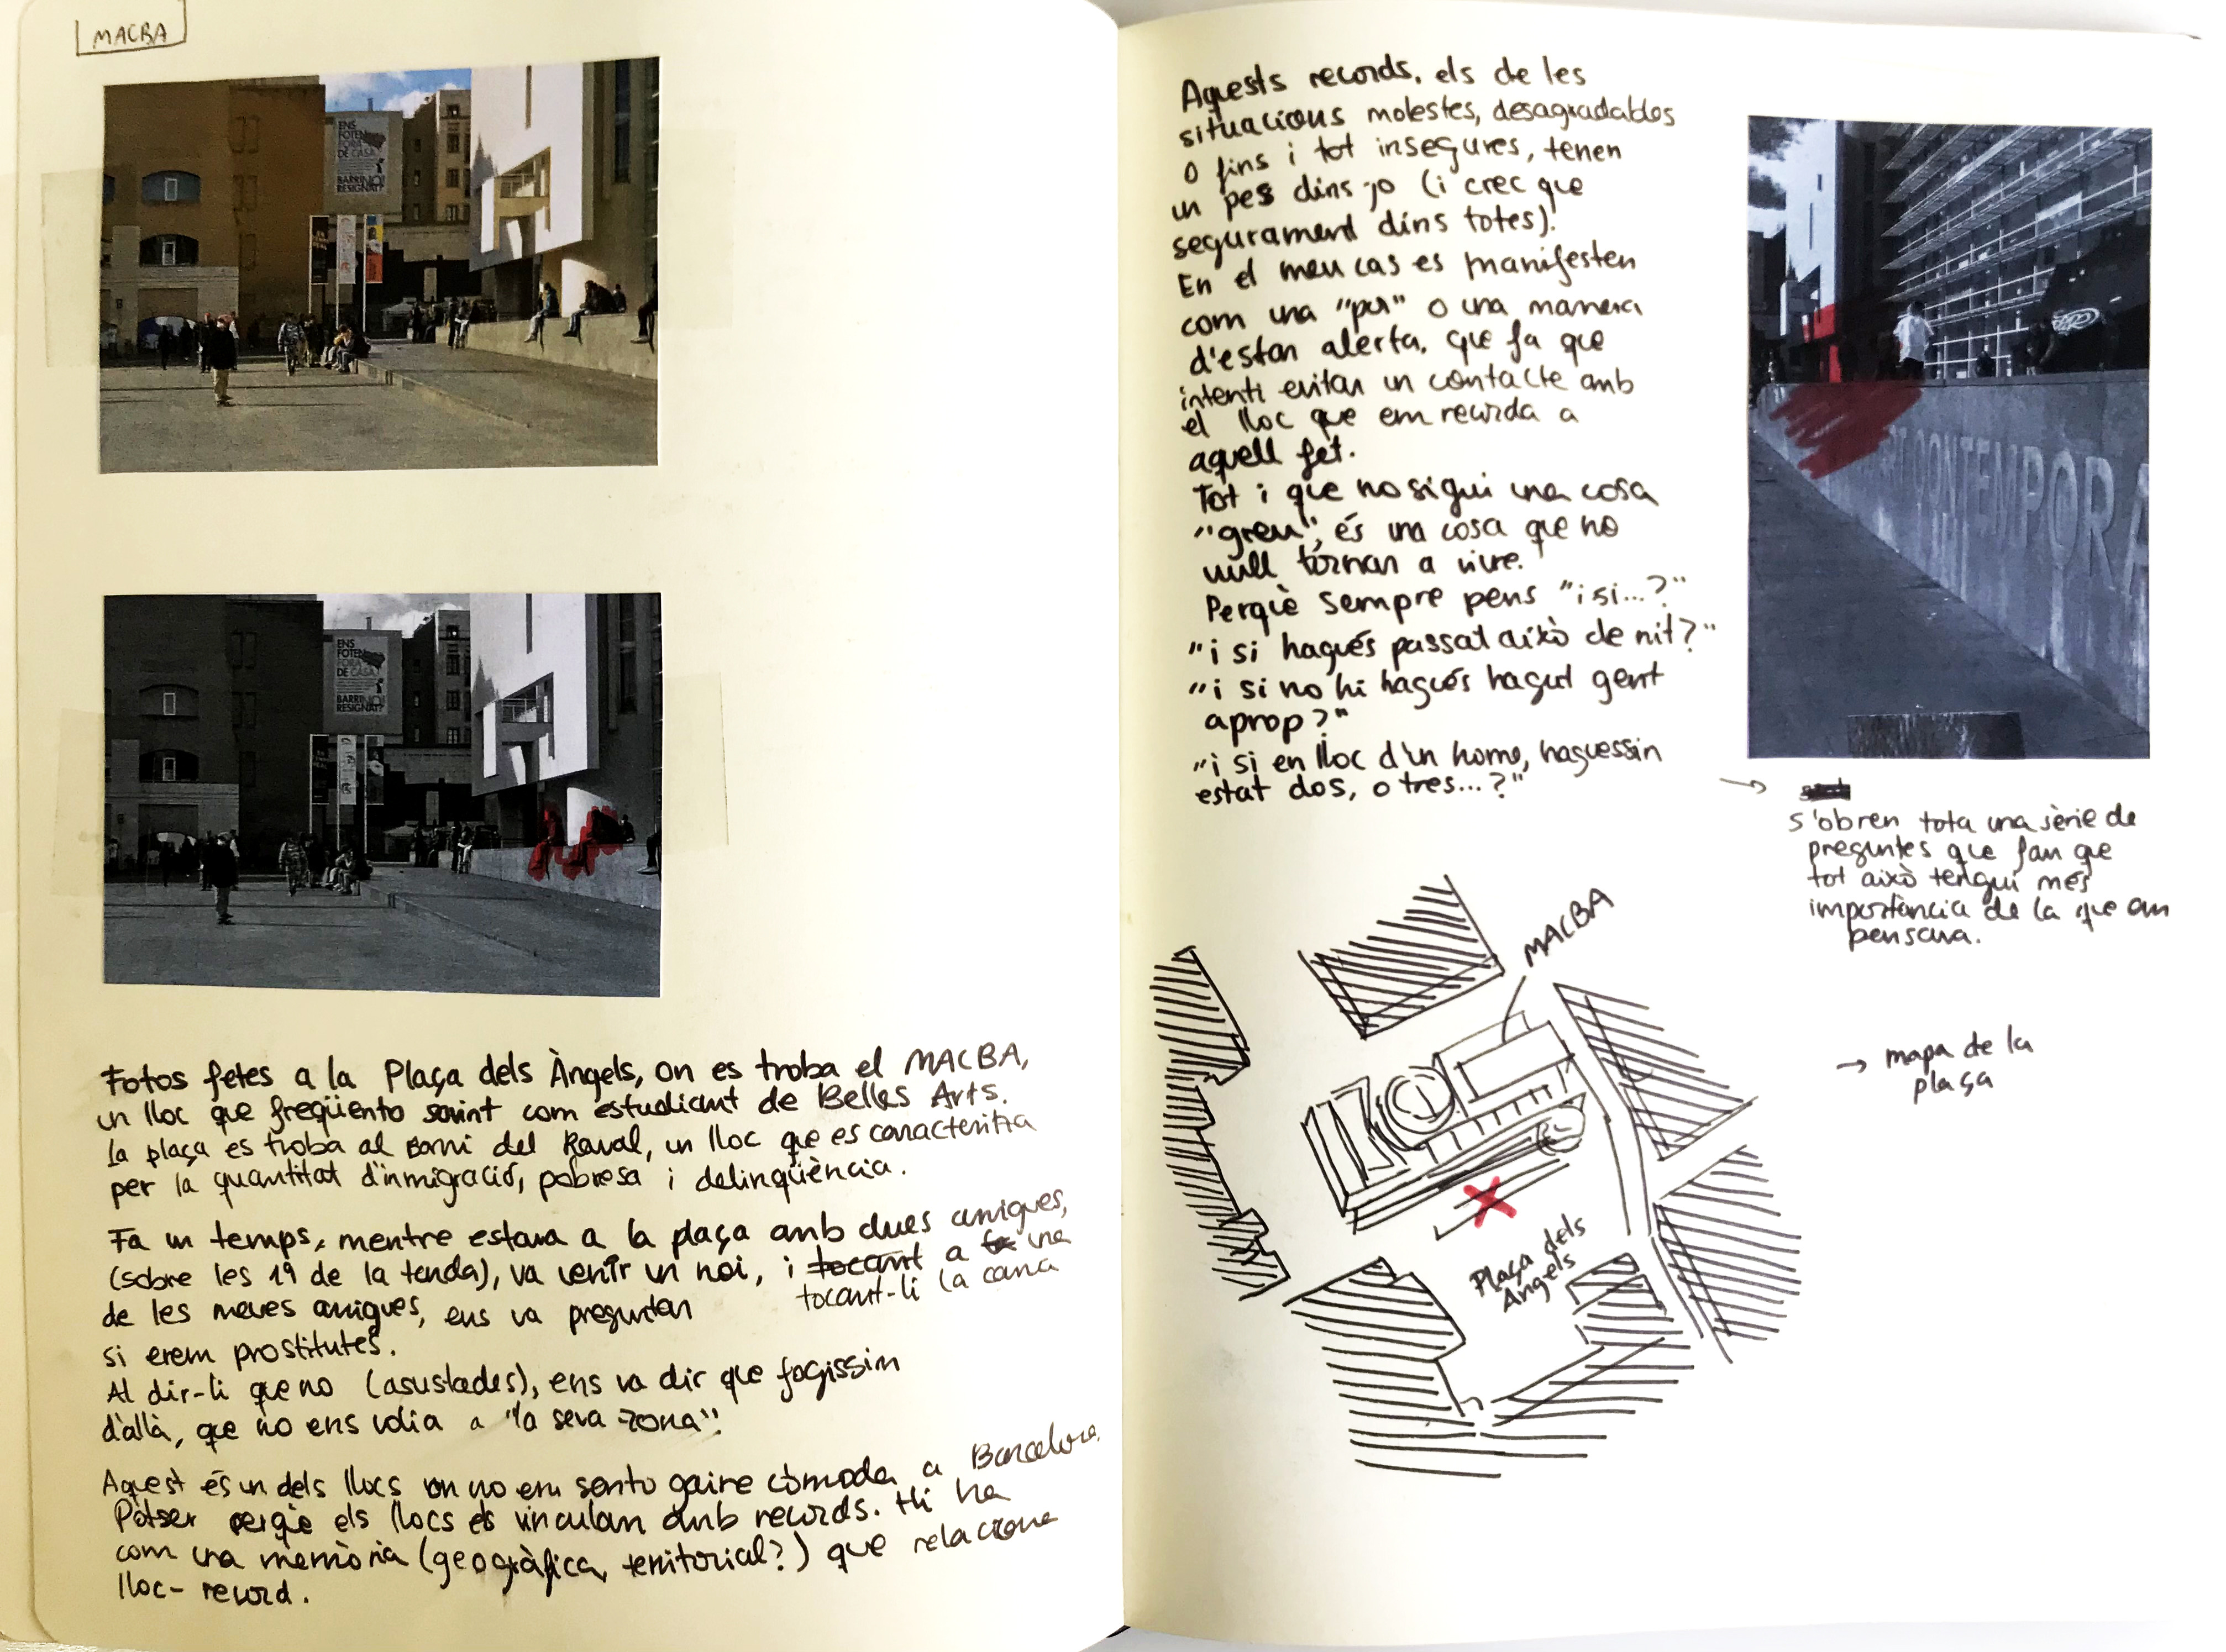 MACBA
ENS
FOTEN
FORA
DE CASA
BARRI NO
RESIGNAT?
ENS
FOTEN
FORA
DE CASA
BARRI NO
RESIGNAT?
Fotos fetes a la Plaça dels Àngels, on es troba el MACBA,
un lloc que freqüento sovint com estudiant de Belles Arts.
La plaça es troba al Barri del Raval, un lloc que es caracteritza
per la quantitat d'inmigració, pobresa i delinqüència.
Fa un temps, mentre estava a la plaça amb dues amigues,
(sobre les 19 de la tarda), va venir un noi, i tocant a una
tocant-li la cara
de les meves amigues, ens va preguntar
si erem prostitutes.
Al dir-li que no (asustades), ens va dir que fogissim
d'allà, que no ens volia a "la seva zona".
Aquest és un dels llocs on no em sento gaire còmoda a Barcelona.
Potser perquè els llocs es vinculan amb records. Hi ha
com una memòria (geogràfica, territorial?) que relaciona
lloc-record.
Aquests records, els de les
situacions molestes, desagradables
o fins i tot insegures, tenen
un pes dins jo (i crec que
segurament dins totes).
En el meu cas es manifesten
com una "por" o una manera
d'estar alerta, que fa que
intenti evitar un contacte amb
el lloc que em recorda a
aquell fet.
Tot i que no sigui una cosa
"greu", és una cosa que no
vull tornar a viure.
Perquè sempre pens "i si...?"
"i si hagués passat això de nit?"
"i si no hi hagués hagut gent
aprop?"
"i si en lloc d'un home, haguessin
estat dos, o tres...?"
CONTEMPORA
→
s'obren tota una sèrie de
preguntes que fan que
tot això tengui més
importància de la que em
pensava.
MACBA
Plaça dels
Àngels
→ mapa de la
plaça